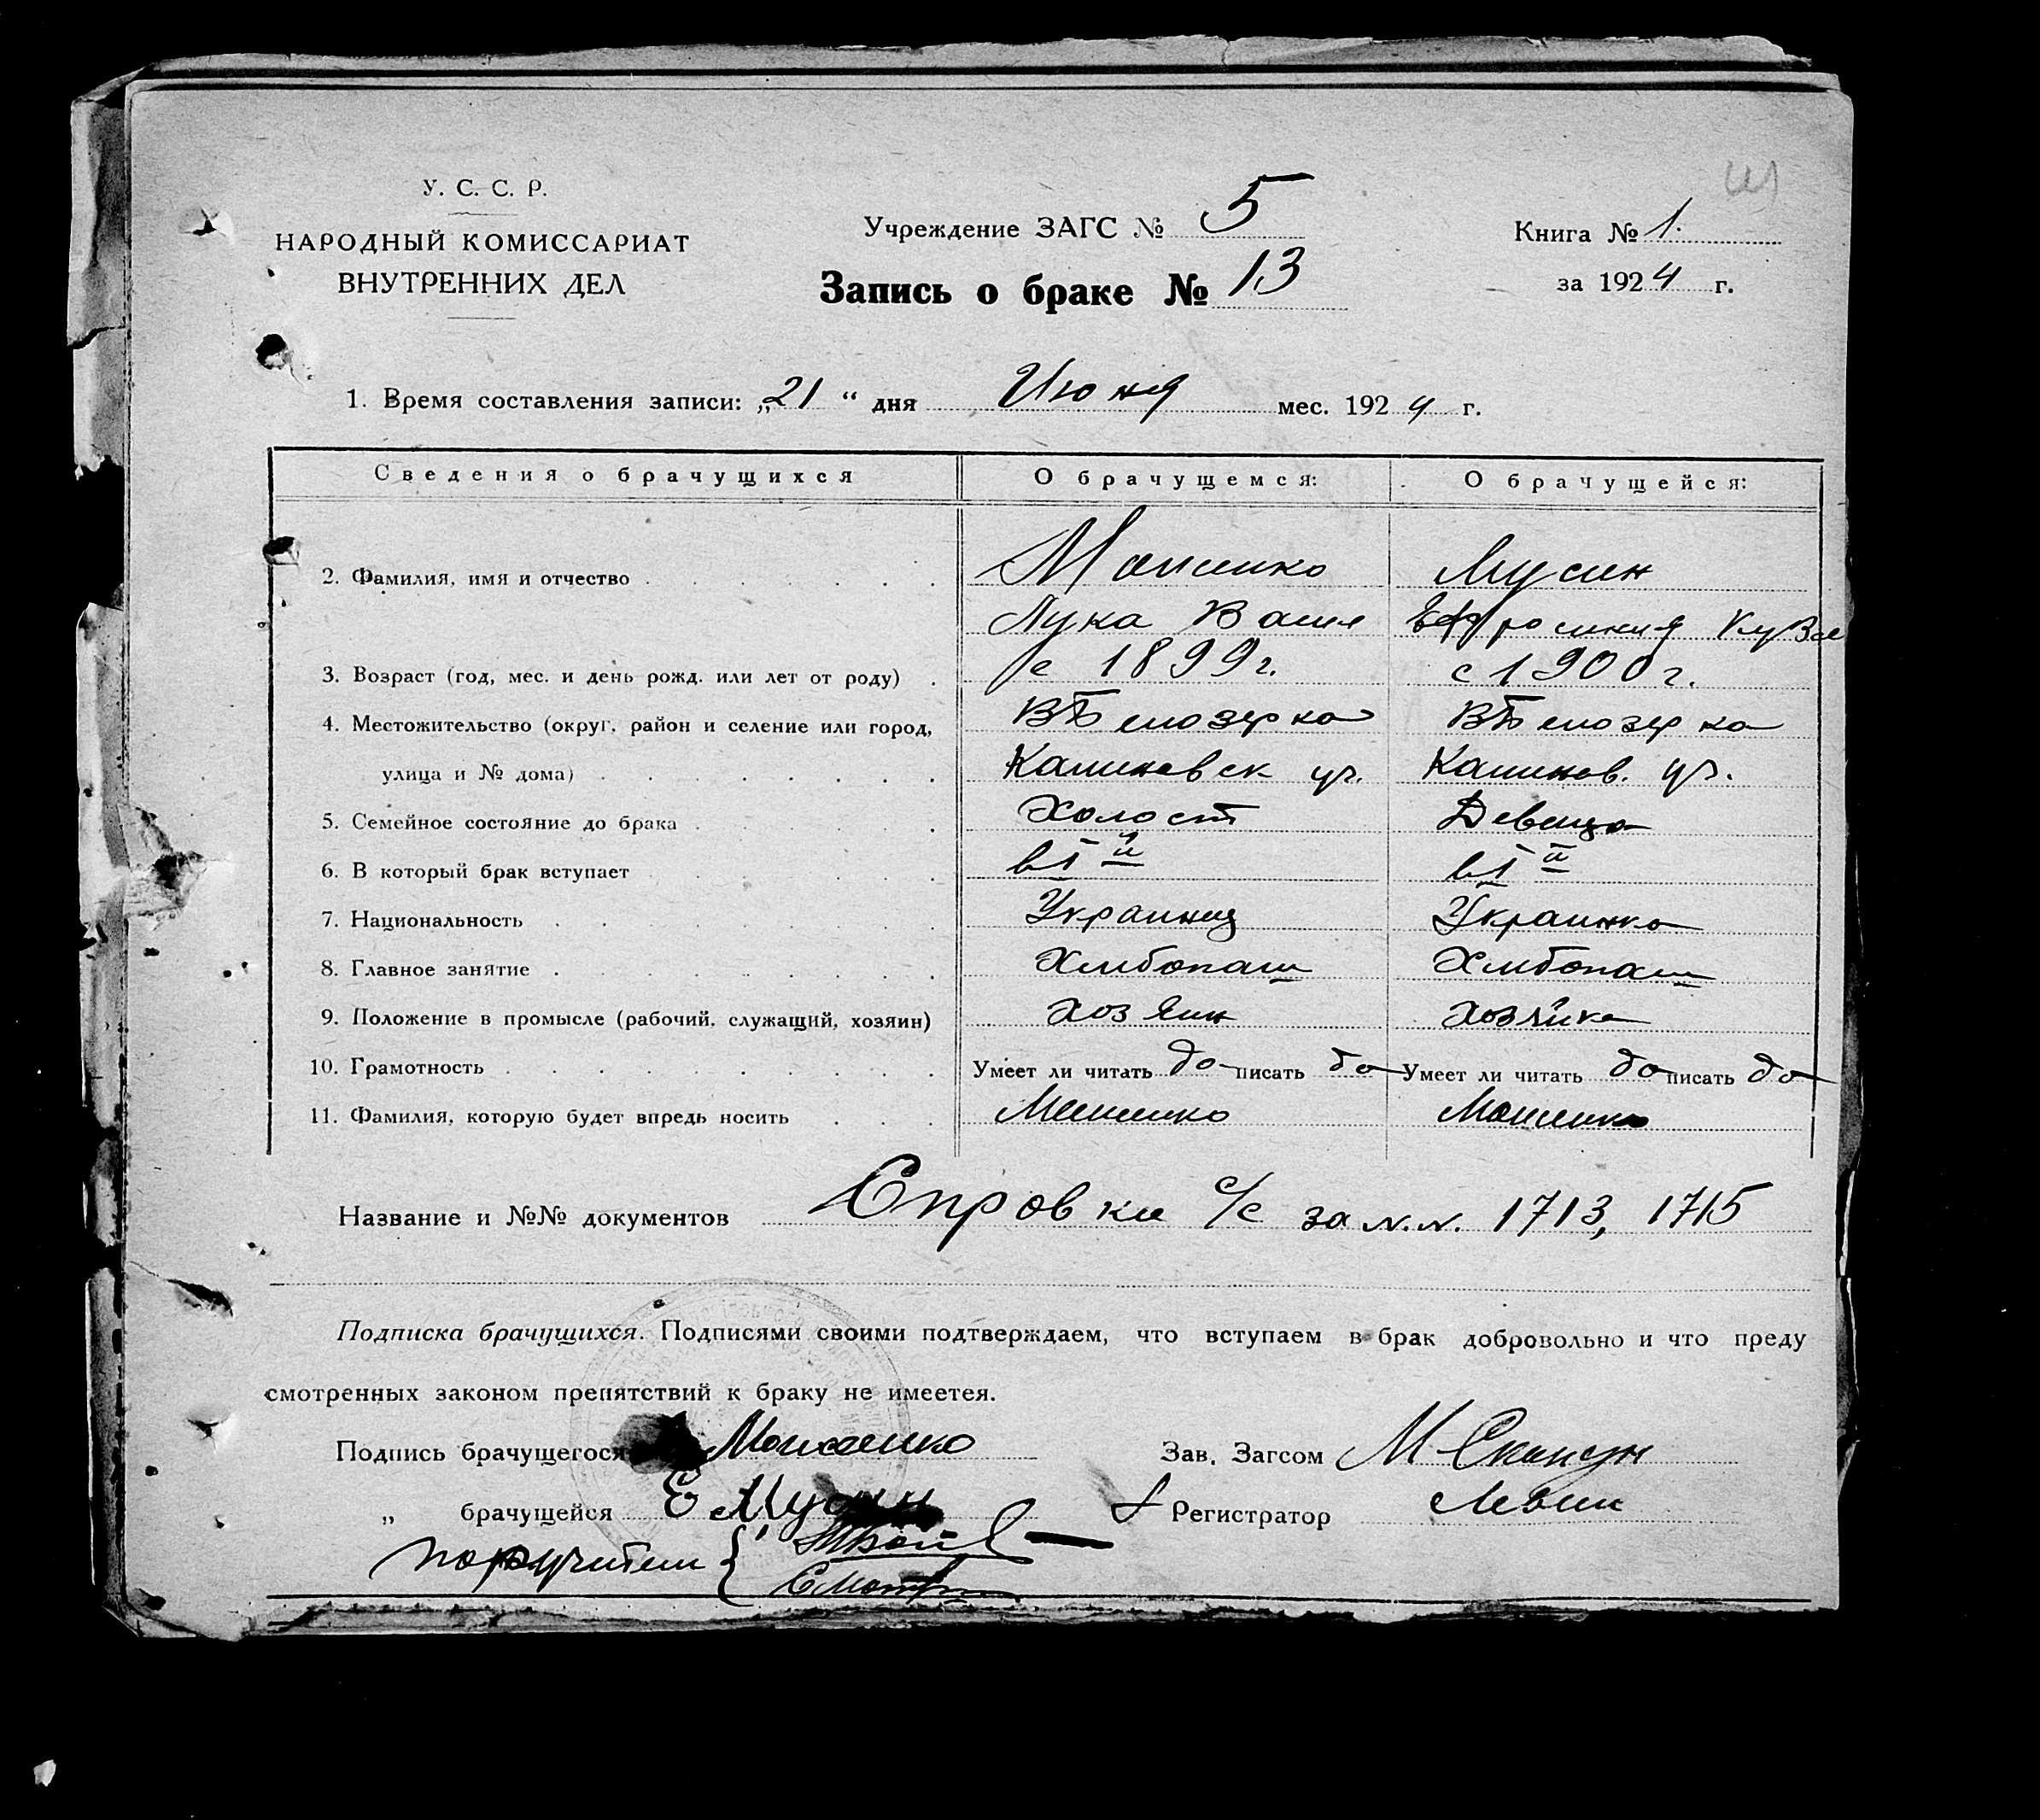 У. С. С. Р.
НАРОДНЫЙ КОМИССАРИАТ
ВНУТРЕННИХ ДЕЛ
Учреждение ЗАГС № 5
Запись о браке № 13
Книга № 1.
за 1924 г.
1. Время составления записи: „21“ дня Июня мес. 1924 г.
Сведения о брачущихся О брачущемся: О брачущейся:
2. Фамилия, имя и отчество Мусин
Лука
3. Возраст (год, мес. и день рожд. или лет от роду) с 1899 г. с 1900 г.
4. Местожительство (округ, район и селение или город, ВБелозерка ВБелозерка
улица и № дома)
5. Семейное состояние до брака Холост Девица
6. В который брак вступает в I й в I й
7. Национальность Украинец Украинка
8. Главное занятие Хлибопаш Хлибопаш
9. Положение в промысле (рабочий, служащий, хозяин) хозяин хозяйка
10. Грамотность Умеет ли читать да писать да Умеет ли читать да писать да
11. Фамилия, которую будет впредь носить
Название и №№ документов Справки с/с за N.N. 1713, 1715
Подписка брачущихся. Подписями своими подтверждаем, что вступаем в брак добровольно и что преду
смотренных законом препятствий к браку не имеетея.
Подпись брачущегося Зав. Загсом
„ брачущейся Е Мусин Регистратор
поручители {